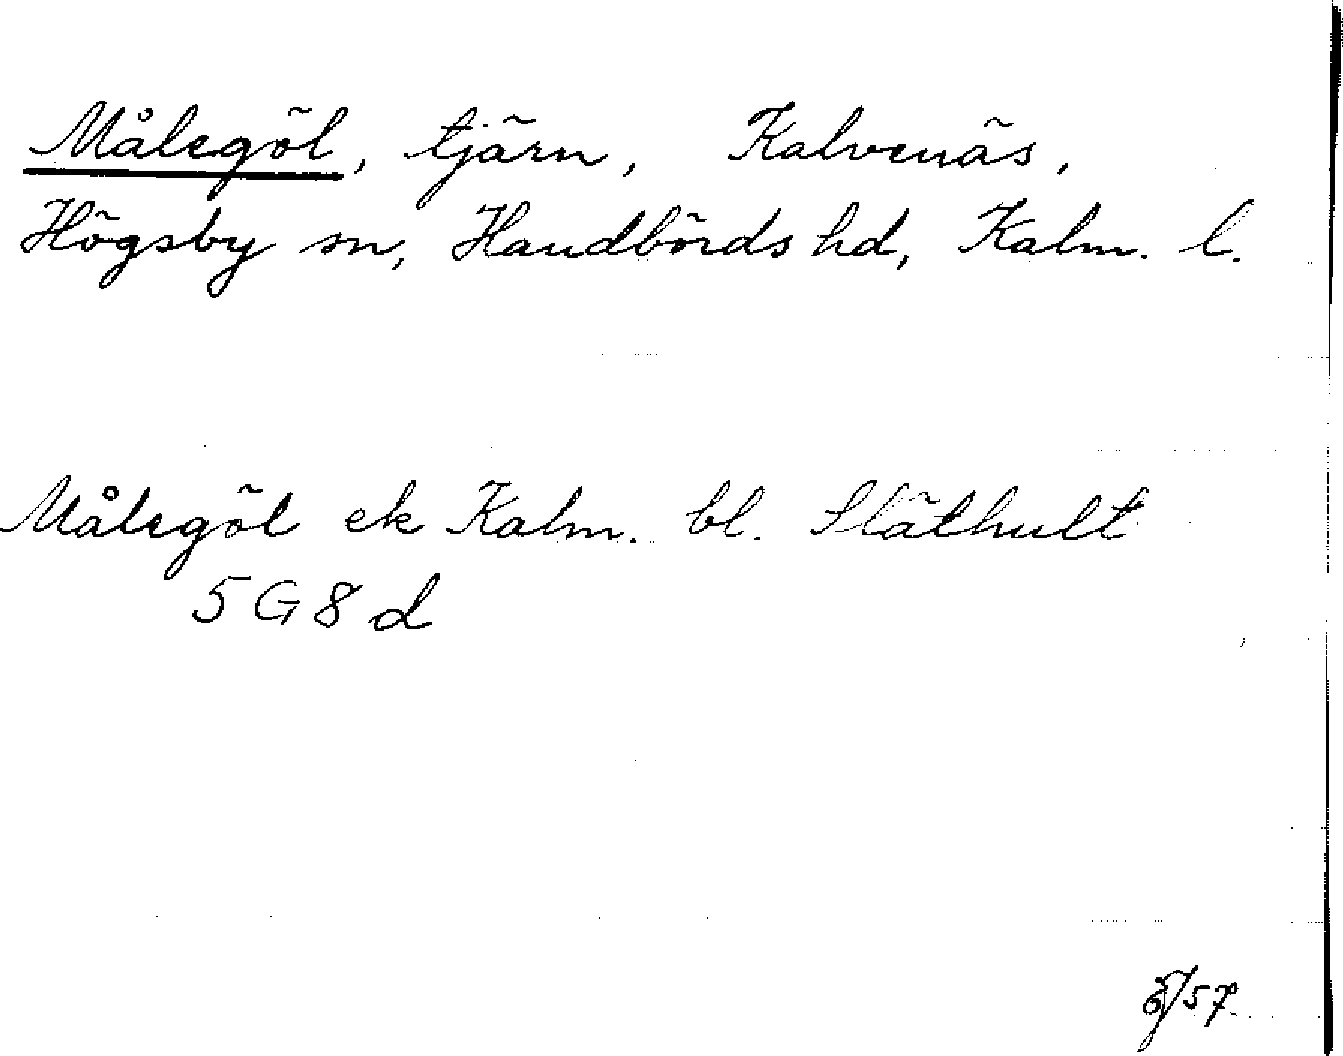 Målegöl, tjärn, Kalvenäs,
Högsby sn, Handbörds hd, Kalm. l.
Målegöl ek Kalm. bl. Släthult
5G8d